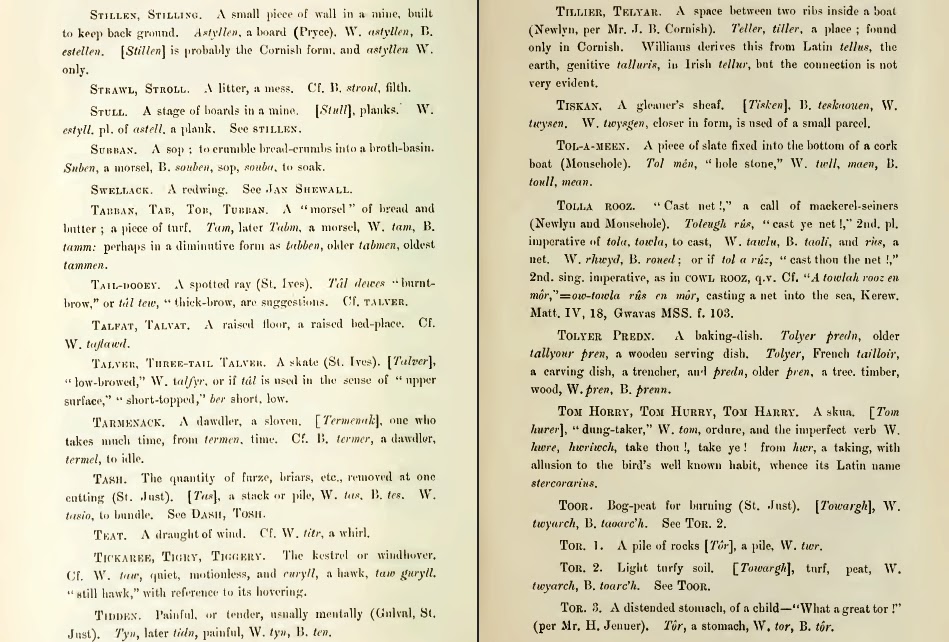 STILLEN, STILLING. A small piece of wall in a mine, built
to keep back ground. Astyllen, a board (Pryce). W. astyllen, B.
estellen. [Stillen] is probably the Cornish form, and astyllen W.
only.
STRAWL, STROLL. A litter, a mess. Cf. B. stroul, filth.
STULL. A stage of boards in a mine. [Stull], planks. W.
estyll. pl. of astell, a plank. See STILLEN.
SUBBAN. A sop; to crumble bread-crumbs into a broth-basin.
Suben, a morsel, B. souben, sop, souba, to soak.
SWELLACK. A redwing. See JAN SHEWALL.
TABBAN, TAB, TOB, TUBBAN. A "morsel" of bread and
butter; a piece of turf. Tam, later Tabm, a morsel, W. tam, B.
tamm: perhaps in a diminutive form as tabben, older tabmen, oldest
tammen.
TAIL-DOOEY. A spotted ray (St. Ives). Tál dewes "burnt-
brow," or tál tew, "thick-brow, are suggestions. Cf. TALVER.
TALFAT, TALVAT. A raised floor, a raised bed-place. Cf.
W. taflawd.
TALVER, THREE-TAIL TALVER. A skate (St. Ives). [Talver],
"low-browed," W. talfyr, or if tál is used in the sense of "upper
surface," "short-topped," ber short, low.
TARMENACK. A dawdler, a sloven. [Termenak], one who
takes much time, from termen, time. Cf. B. termer, a dawdler,
termel, to idle.
TASH. The quantity of furze, briars, etc., removed at one
cutting (St. Just). [Tas], a stack or pile, W. tas, B. tes. W.
tasio, to bundle. See DASH, TOSH.
TEAT. A draught of wind. Cf. W. titr, a whirl.
TICKAREE, TIGRY, TIGGERY. The kestrel or windhover.
Cf. W. taw, quiet, motionless, and curyll, a hawk, taw guryll,
"still hawk," with reference to its hovering.
TIDDEN. Painful, or tender, usually mentally (Gulval, St.
Just). Tyn, later tidn, painful, W. tyn, B. ten.
TILLIER, TELYAR. A space between two ribs inside a boat
(Newlyn, per Mr. J. B. Cornish). Teller, tiller, a place; found
only in Cornish. Williams derives this from Latin tellus, the
earth, genitive talluris, in Irish tellur, but the connection is not
very evident.
TISKAN. A gleaner's sheaf. [Tisken], B. teskaouen, W.
twysen. W. twysgen, closer in form, is used of a small parcel.
TOL-A-MEEN. A piece of slate fixed into the bottom of a cork
boat (Mousehole). Tol mên, "hole stone," W. twll, maen, B.
toull, mean.
TOLLA ROOZ. "Cast net!," a call of mackerel-seiners
(Newlyn and Mousehole). Toleugh rûs, "cast ye net!," 2nd. pl.
imperative of tola, towla, to cast, W. tawlu, B. taoli, and rûs, a
net. W. rhwyd, B. roued; or if tol a rûz, "cast thou the net!,"
2nd. sing. imperative, as in COWL ROOZ, q.v. Cf. "A towlah rooz en
môr,"=ow-towla rûs en môr, casting a net into the sea, Kerew.
Matt. IV, 18, Gwavas MSS. f. 103.
TOLYER PREDN. A baking-dish. Tolyer predn, older
tallyour pren, a wooden serving dish. Tolyer, French tailloir,
a carving dish, a trencher, and predn, older pren, a tree, timber,
wood, W. pren, B. prenn.
TOM HORRY, TOM HURRY, TOM HARRY. A skua. [Tom
hurer], "dung-taker," W. tom, ordure, and the imperfect verb W.
hwre, hwriwch, take thou!, take ye! from hwr, a taking, with
allusion to the bird's well known habit, whence its Latin name
stercorarius.
TOOR. Bog-peat for burning (St. Just). [Towargh], W.
twyarch, B. taoarc'h. See TOR. 2.
TOR. 1. A pile of rocks [Tôr], a pile, W. twr.
TOR. 2. Light turfy soil. [Towargh], turf, peat, W.
twyarch, B. toarc'h. See TOOR.
TOR. 3. A distended stomach, of a child—"What a great tor!"
(per Mr. H. Jenner). Tôr, a stomach, W. tor, B. tôr.